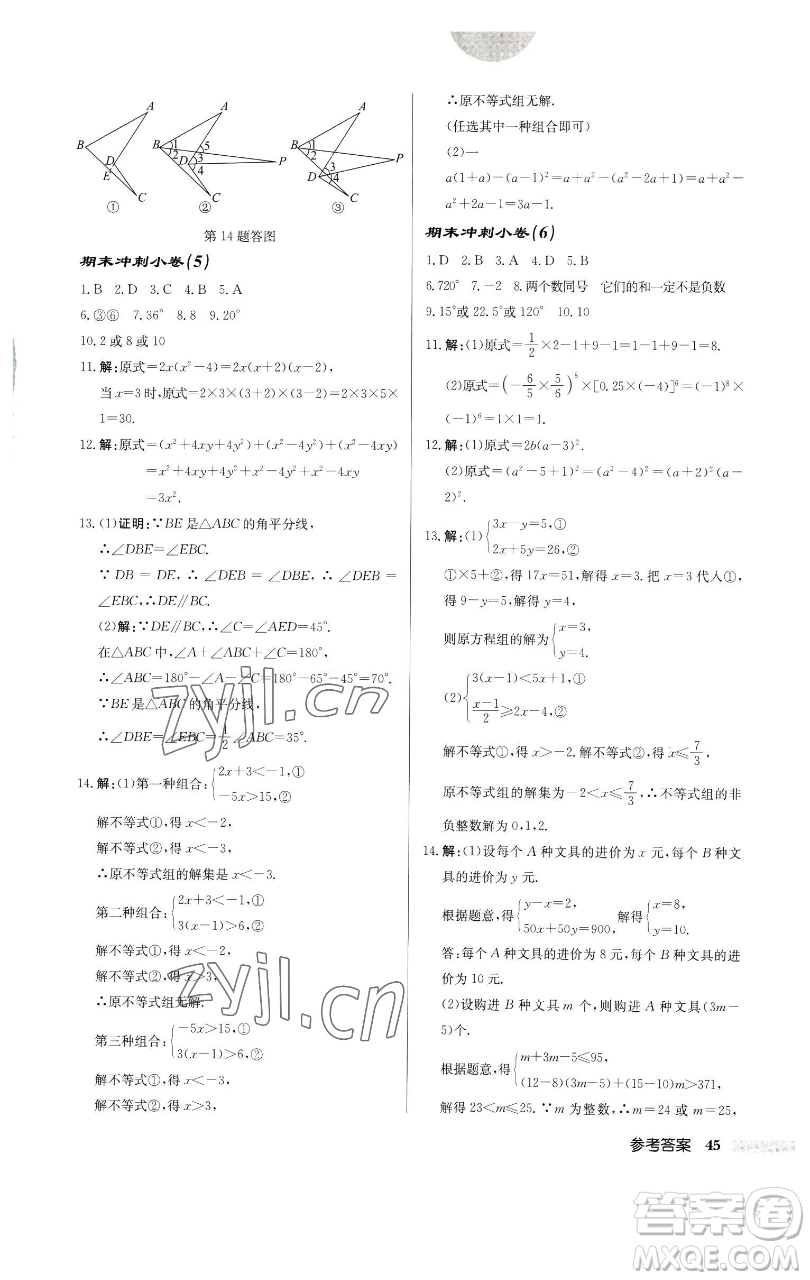 A
B
D
E
C
①
A
B
1
2
5
3
D
4
P
C
②
A
B
1
2
P
3
D
4
C
③
第14题答图
期末冲刺小卷(5)
1.B 2.D 3.C 4.B 5.A
6.③⑥ 7.36° 8.8 9.20°
10.2或8或10
11.解:原式=2x(x²-4)=2x(x+2)(x-2),
当x=3时,原式=2×3×(3+2)×(3-2)=2×3×5×
1=30.
12.解:原式=(x²+4xy+4y²)+(x²-4y²)-(4x²+4xy)
=x²+4xy+4y²+x²-4y²-4x²-4xy
=-2x².
13.(1)证明:∵BE是△ABC的角平分线,
∴∠DBE=∠EBC.
∵DB=DE,∴∠DEB=∠DBE,∴∠DEB=
∠EBC,∴DE∥BC.
(2)解:∵DE∥BC,∴∠C=∠AED=45°.
在△ABC中,∠A+∠ABC+∠C=180°,
∴∠ABC=180°-∠A-∠C=180°-65°-45°=70°.
∵BE是△ABC的角平分线,
∴∠DBE=∠EBC=1/2∠ABC=35°.
14.解:(1)第一种组合:{2x+3<-1,①
-5x>15,②
解不等式①,得x<-2,
解不等式②,得x<-3,
∴原不等式组的解集是x<-3.
第二种组合:{2x+3<-1,①
3(x-1)>6,②
解不等式①,得x<-2,
解不等式②,得x>3,
∴原不等式组无解.
第三种组合:{-5x>15,①
3(x-1)>6,②
解不等式①,得x<-3,
解不等式②,得x>3,
∴原不等式组无解.
(任选其中一种组合即可)
(2)一
a(1+a)-(a-1)²=a+a²-(a²-2a+1)=a+a²-
a²+2a-1=3a-1.
期末冲刺小卷(6)
1.D 2.C 3.A 4.D 5.B
6.720° 7.-2 8.两个数同号 它们的和一定不是负数
9.15°或22.5°或120° 10.10
11.解:(1)原式=1/2×2-1+9-1=1-1+9-1=8.
(2)原式=(-6/5×5/6)⁸×[0.25×(-4)]⁶=(-1)⁸×
(-1)⁶=1×1=1.
12.解:(1)原式=2b(a-3)².
(2)原式=(a²-5+1)²=(a²-4)²=(a+2)²(a-
2)².
13.解:(1){3x-y=5,①
2x+5y=26,②
①×5+②,得17x=51,解得x=3.把x=3代入①,
得9-y=5,解得y=4,
则原方程组的解为{x=3,
y=4.
(2){3(x-1)<5x+1,
(x-1)/2≥2x-4,②
解不等式①,得x>-2.解不等式②,得x≤7/3,
原不等式组的解集为-2<x≤7/3,∴不等式组的非
负整数解为0,1,2.
14.解:(1)设每个A种文具的进价为x元,每个B种文
具的进价为y元.
根据题意,得{y-x=2,
50x+50y=900, 解得{x=8,
y=10.
答:每个A种文具的进价为8元,每个B种文具的进
价为10元.
(2)设购进B种文具m个,则购进A种文具(3m-
5)个.
根据题意,得{m+3m-5≤95,
(12-8)(3m-5)+(15-10)m>371,
解得23<m≤25.∵m为整数,∴m=24或m=25,
参考答案 45
zyjl.cn
zyjl.cn
答案圈
MXQE.COM